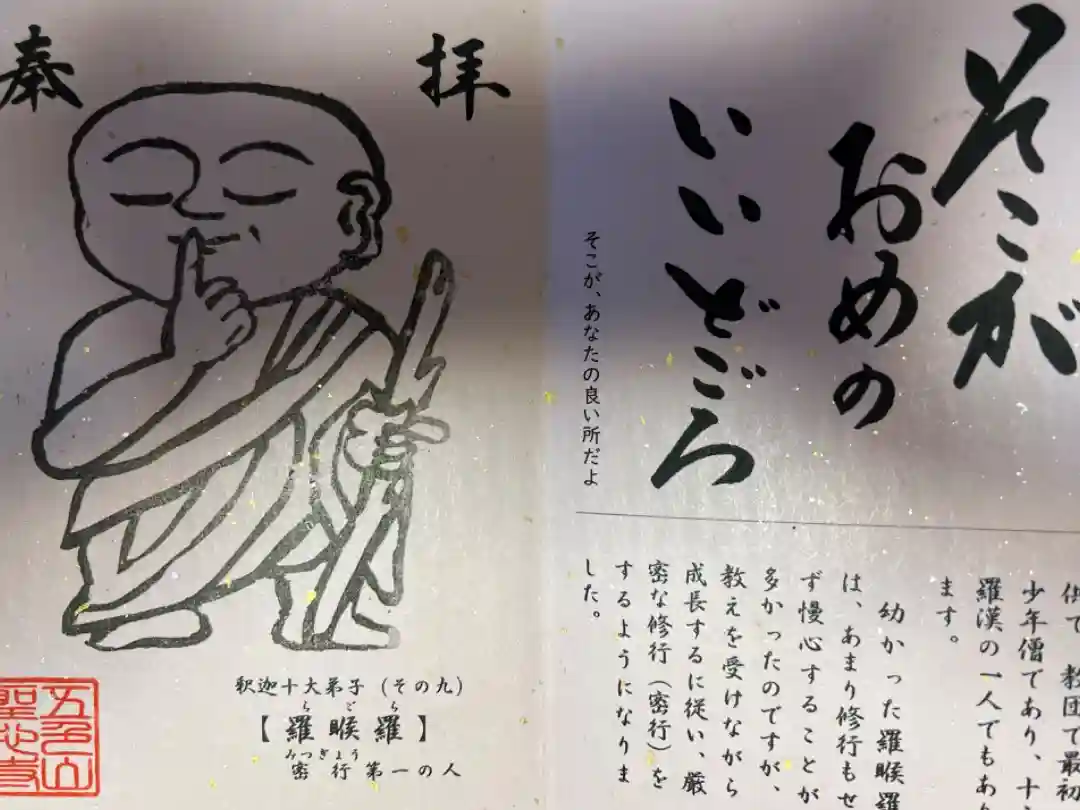 そこが
おめの
いいどごろ
そこが、あなたの良い所だよ
供で、教団で最初
少年僧であり、十
羅漢の一人でもあ
ます。
幼かった羅睺羅
は、あまり修行もせ
ず慢心することが
多かったのですが、
教えを受けながら
成長するに従い、厳
密な修行（密行）を
するようになりま
した。
拝
奉
釈迦十大弟子（その九）
らごら
【羅睺羅】
みつぎょう
密行第一の人